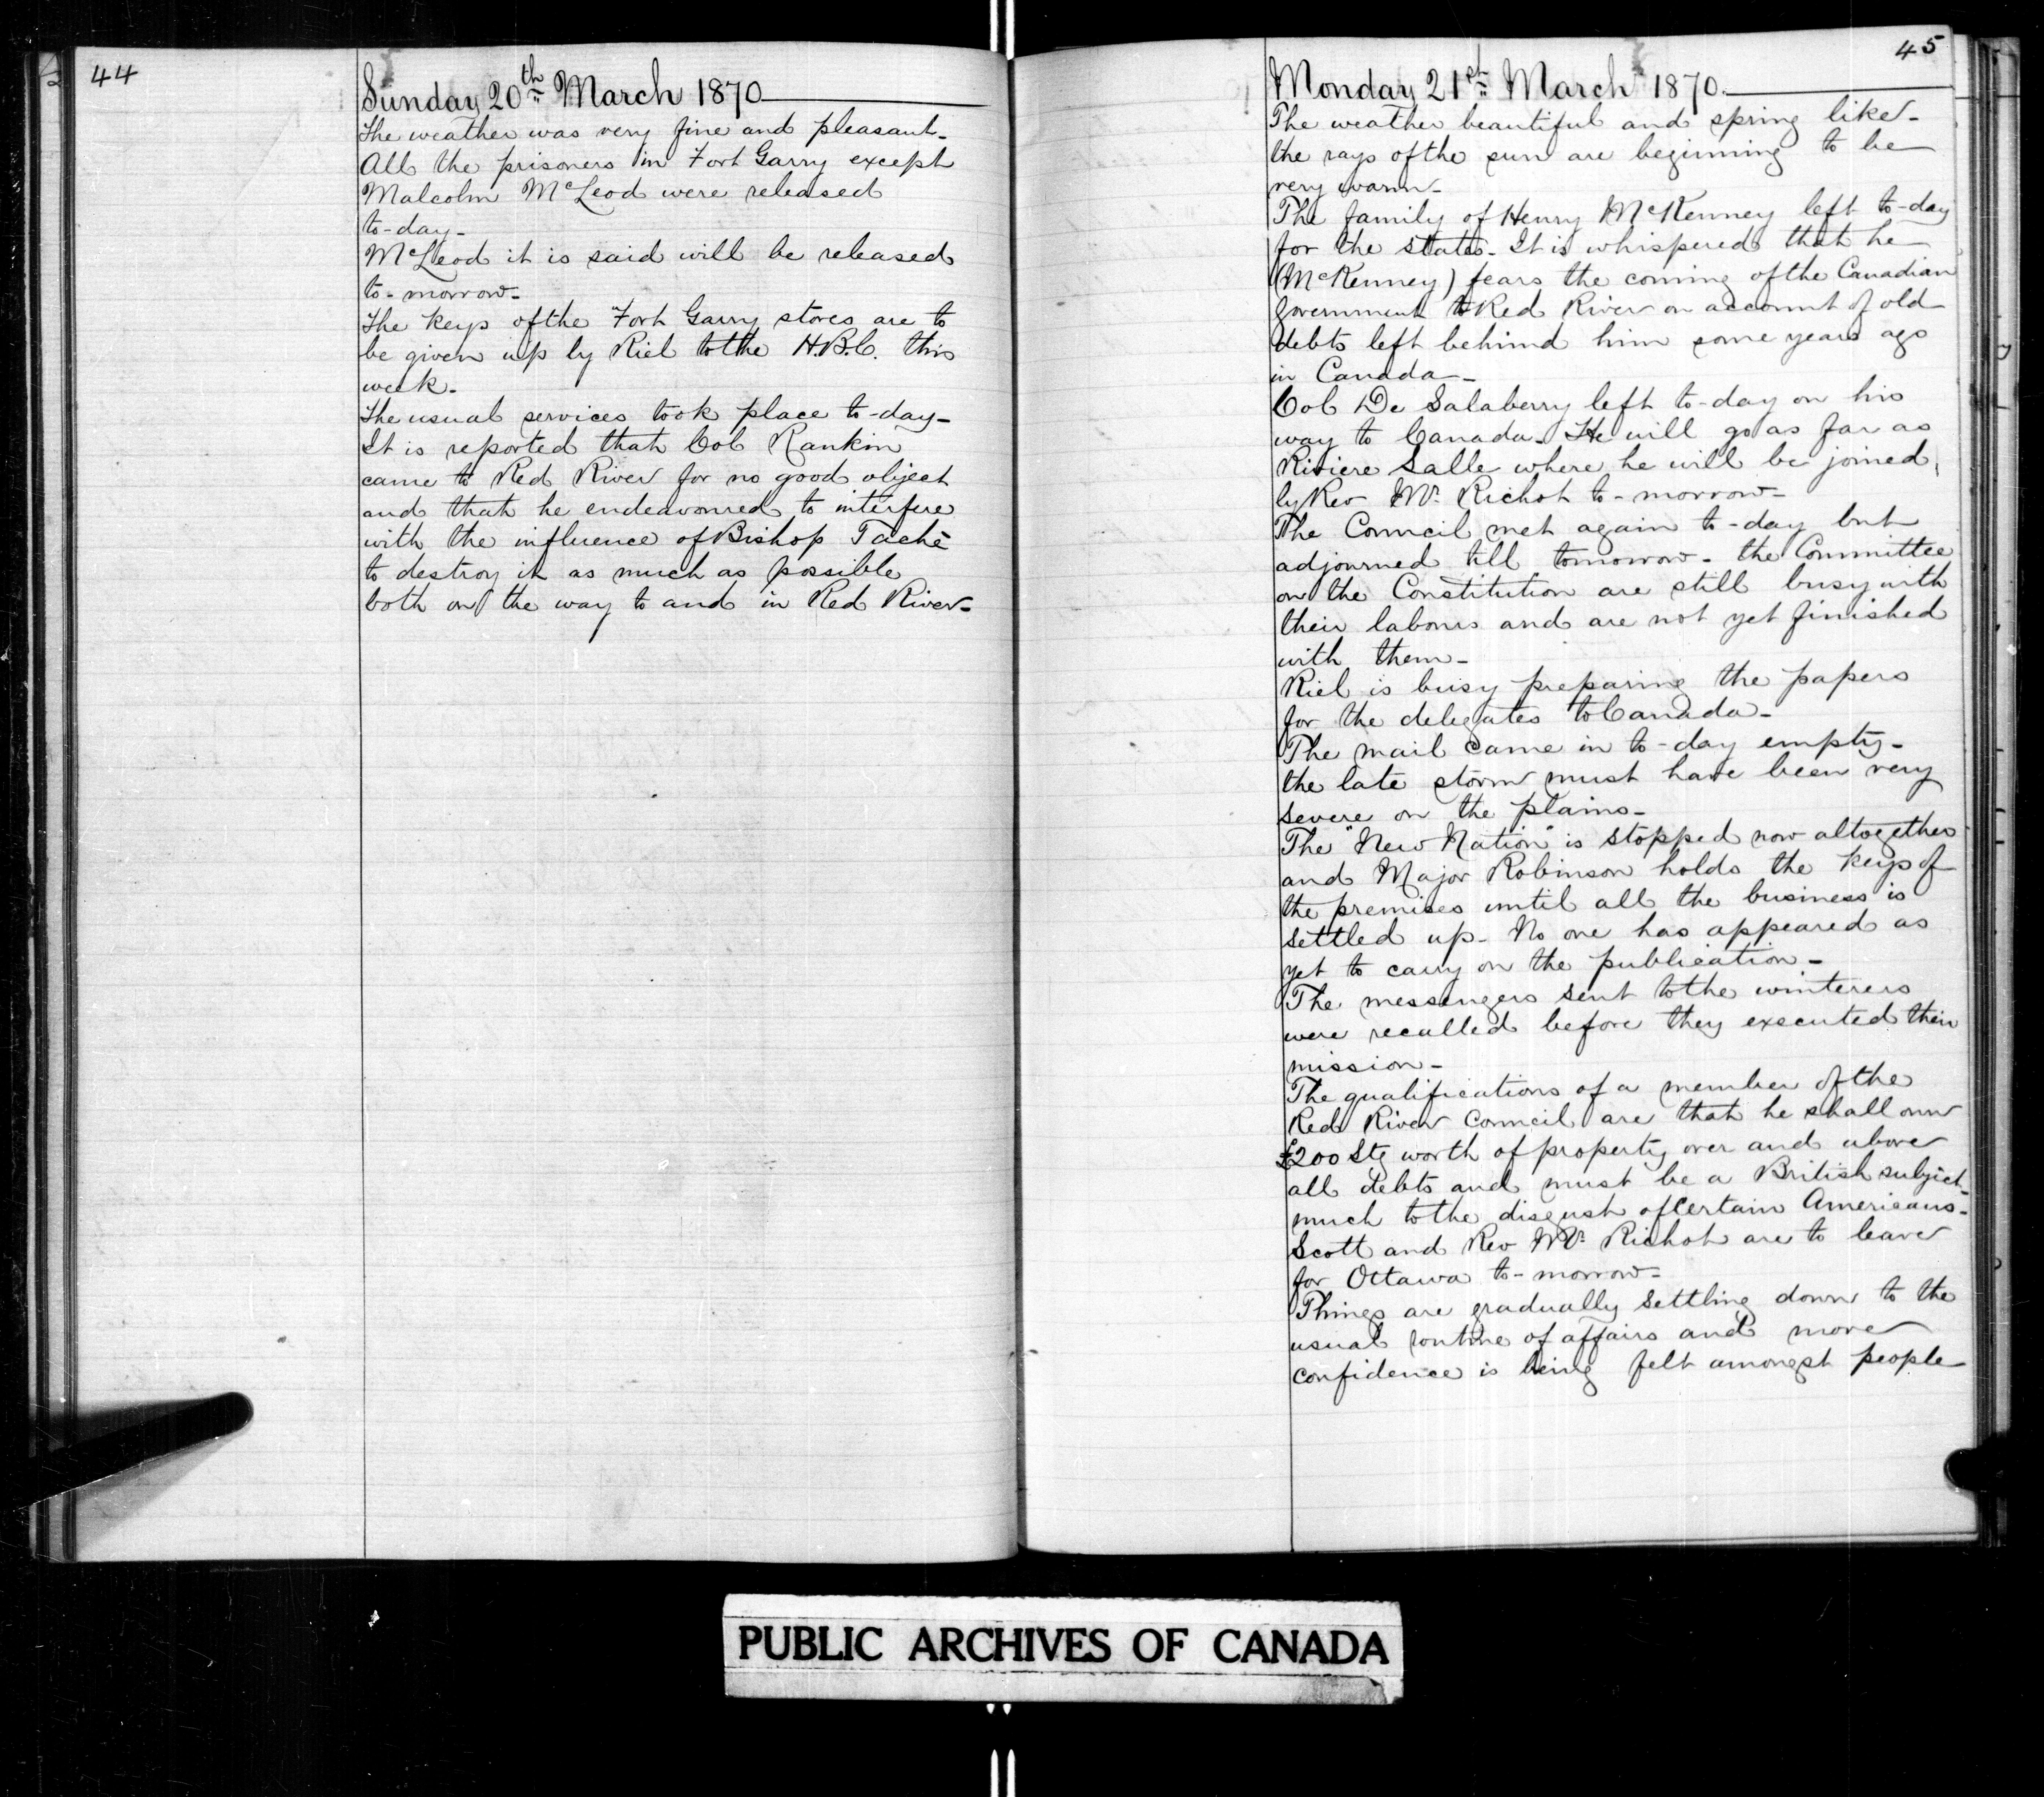 44
Sunday 20th March 1870
The weather was very fine and pleasant-
All the prisoners in Fort Garry except
Malcolm McLeod were released
to-day-
McLeod it is said will be released
to-morrow-
The keys of the Fort Garry stores are to
be given up by Riel to the H.B.C. this
week-
The usual services took place to-day-
It is reported that Col Rankin
came to Red River for no good object
and that he endeavoured to interfere
with the influence of Bishop Taché
to destroy it as much as possible
both on the way to and in Red River-
45
Monday 21st March 1870.
The weather beautiful and spring like-
the rays of the sun are beginning to be
very warm-
The family of Henry McKenney left to-day
for the states. It is whispered that he
(McKenney) fears the coming of the Canadian
Government to Red River on account of old
debts left behind him some years ago
in Canada-
Col De Salaberry left to-day on his
way to Canada. He will go as far as
Riviere Salle where he will be joined
by Rev Mr. Richot to-morrow-
The Council met again to-day but
adjourned till tomorrow- the Committee
on the Constitution are still busy with
their labours and are not yet finished
with them-
Riel is busy preparing the papers
for the delegates to Canada-
The mail came in to-day empty-
the late storm must have been very
severe on the plains-
The "New Nation" is stopped now altogether
and Major Robinson holds the keys of
the premises until all the business is
settled up- No one has appeared as
yet to carry on the publication-
The messengers sent to the winterers
were recalled before they executed their
mission-
The qualifications of a member of the
Red River Council are that he shall own
£200 Stg worth of property over and above
all debts and must be a British subject-
much to the disgust of certain Americans-
Scott and Rev Mr. Richot are to leave
for Ottawa to-morrow-
Things are gradually settling down to the
usual routine of affairs and more
confidence is being felt amongst people
PUBLIC ARCHIVES OF CANADA